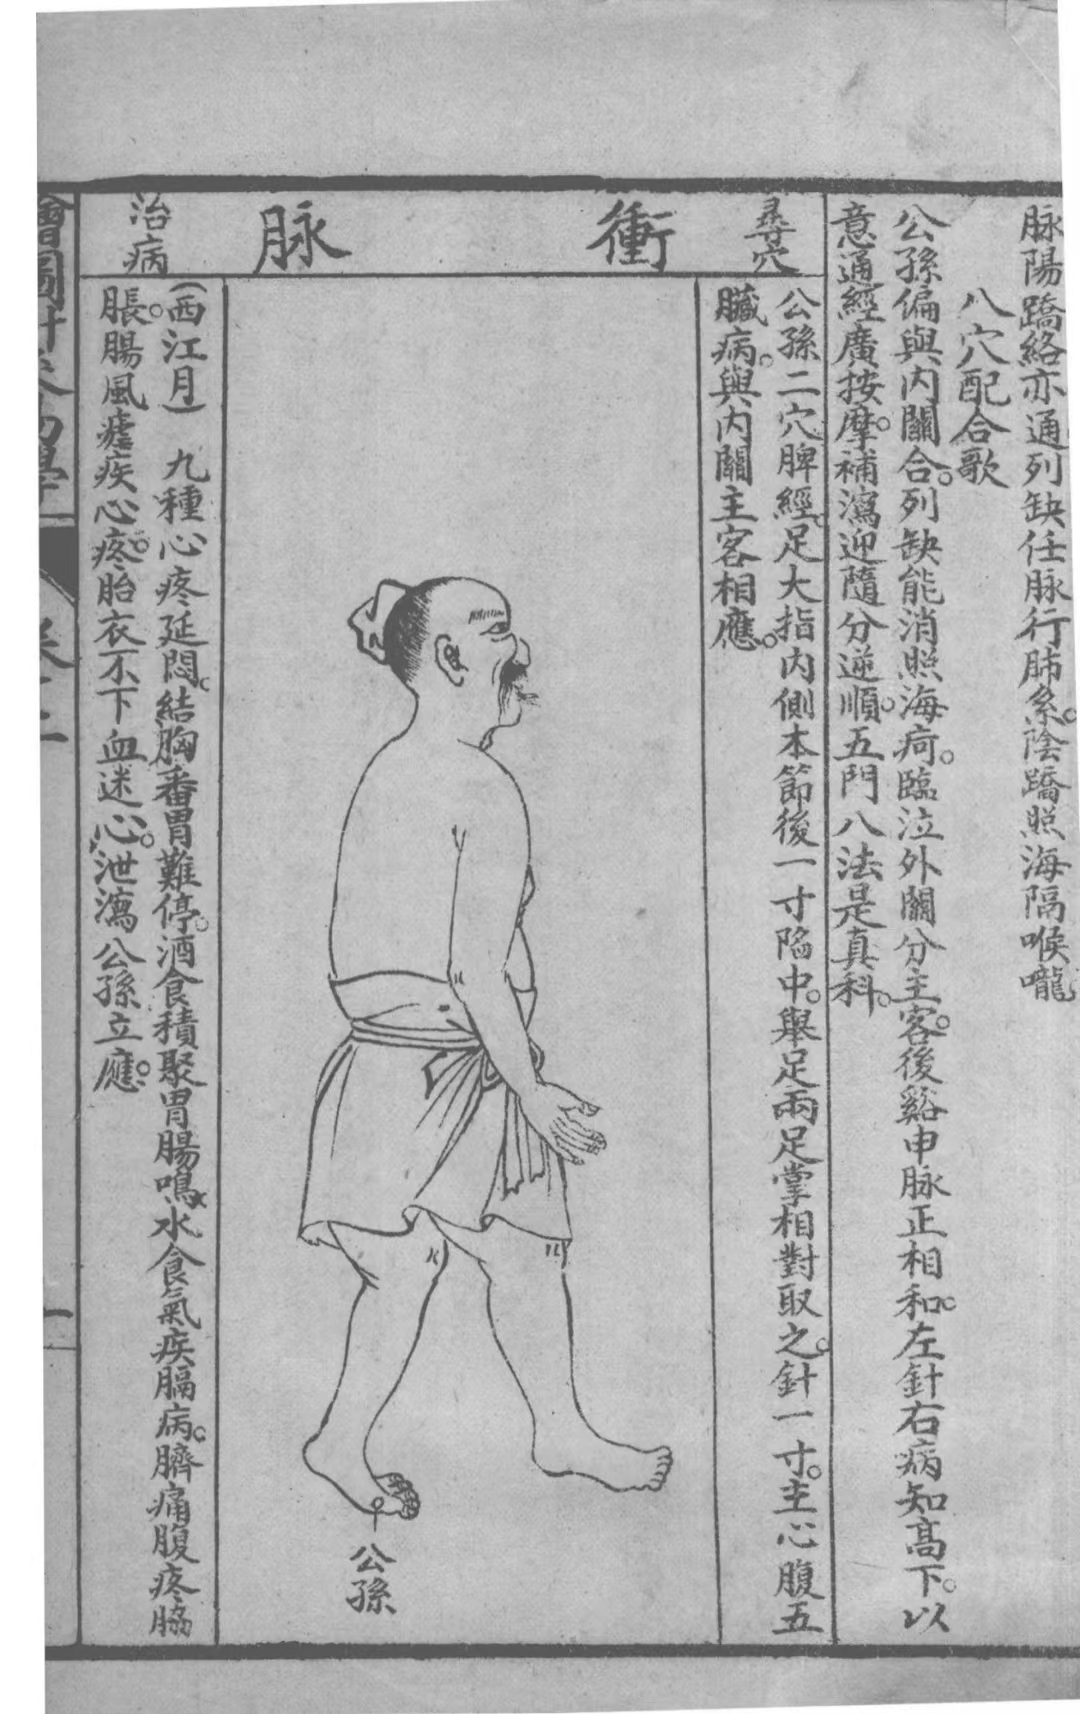 脉陽蹻絡亦通列缺任脉行肺系。陰蹻照海隔喉嚨。
八穴配合歌
公孫偏與内關合。列缺能消照海疴。臨泣外關分主客。後谿申脉正相和。左針右病知高下。以
意通經廣按摩。補瀉迎隨分逆順。五門八法是真科。
尋穴
公孫二穴脾經。足大指内側本節後一寸陷中。舉足兩足掌相對取之。針一寸。主心腹五
臟病。與内關主客相應。
衝脉
公孫
治病
(西江月) 九種心疼延悶。結胸番胃難停。酒食積聚胃腸鳴。水食氣疾膈病。臍痛腹疼脇
脹。腸風瘧疾心疼。胎衣不下血迷心。泄瀉公孫立應。